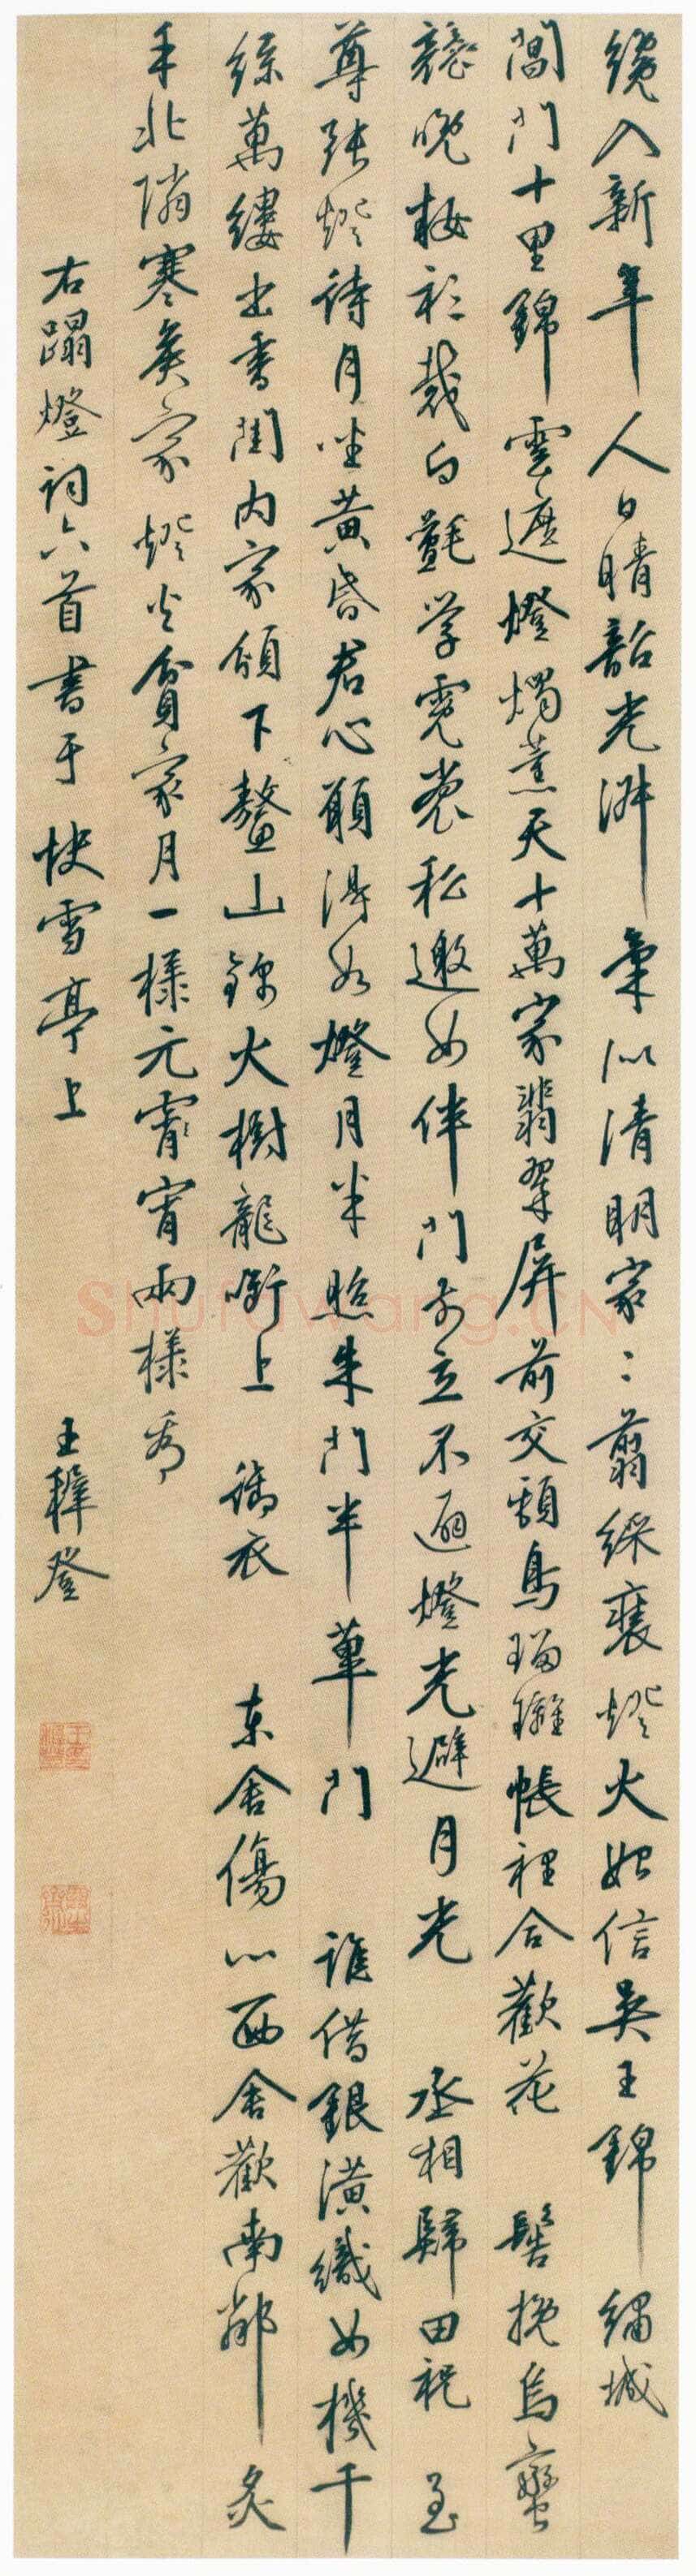 纔入新年人日晴韶光淑氣似清明家〻翦綵裹燈火始信吳王錦繡城
閶門十里錦雲遮燈燭薰天十萬家翡翠屏前交頸鳥瑠璃帳裡合歡花 髻挽烏蠻
髩晚妝衫裁白㲲學霓裳私邀女伴門前立不逼燈光避月光 丞相歸田祝至
尊張燈待月坐黃昏君心願得如燈月半照朱門半華門 誰借銀潢織女機千
絲萬縷出香閨內家頒下鼇山錦火樹龍銜上 御衣 東舍傷心西舍歡南鄰炙
手北隣寒矣家燈火貧家月一樣元宵宵兩樣看
右蹋燈詞六首書于快雪亭上 王穉登
shufawang.CN